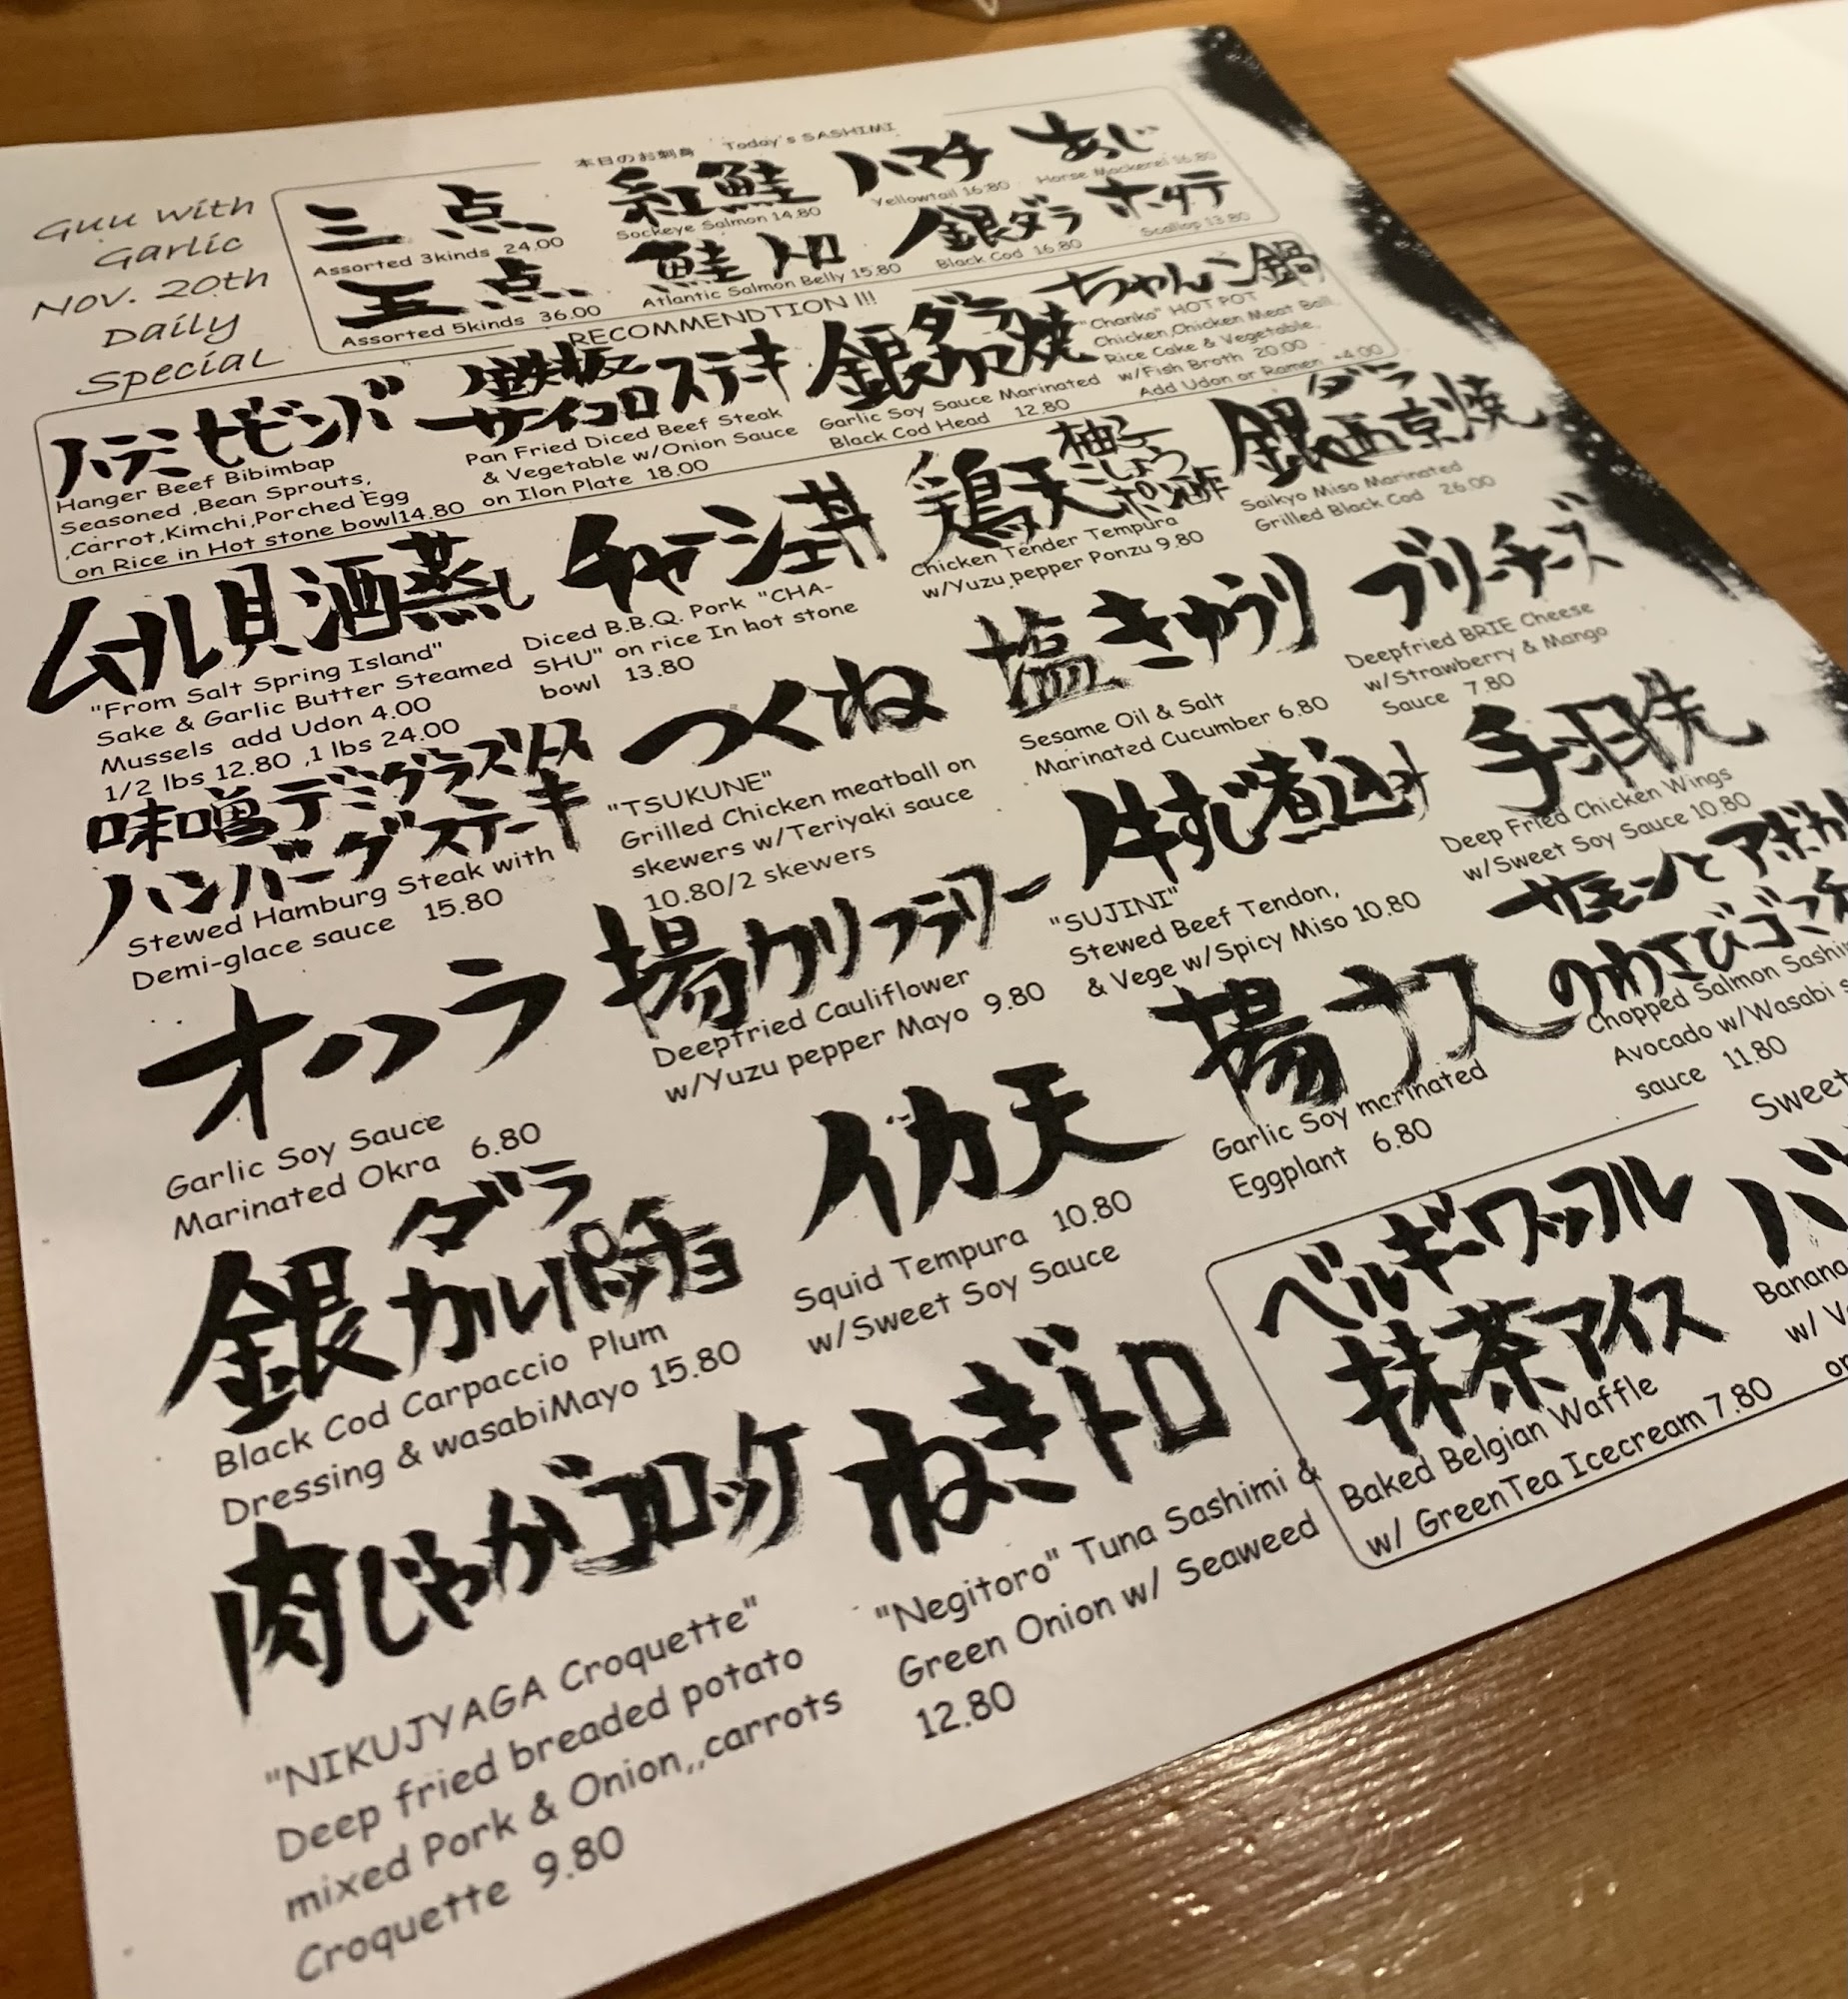 Guu with
Garlic
Nov. 20th
Daily
Special
本日のお刺身 Today's SASHIMI
三点
Assorted 3kinds 24.00
紅鮭
Sockeye Salmon 14.80
ハマチ
Yellowtail 16.80
あじ
Horse Mackerel 16.80
五点
Assorted 5kinds 36.00
鮭トロ
Atlantic Salmon Belly 15.80
銀ダラ
Black Cod 16.80
ホタテ
Scallop 13.80
RECOMMENDTION !!!
ハラミビビンバ
Hanger Beef Bibimbap
Seasoned ,Bean Sprouts,
,Carrot,Kimchi,Porched Egg
on Rice in Hot stone bowl14.80
鉄板
サイコロステーキ
Pan Fried Diced Beef Steak
& Vegetable w/Onion Sauce
on Ilon Plate 18.00
銀ダラカマ焼
Garlic Soy Sauce Marinated
Black Cod Head 12.80
ちゃんこ鍋
"Chanko" HOT POT
Chicken,Chicken Meat Ball,
Rice Cake & Vegetable,
w/Fish Broth 20.00
Add Udon or Ramen +4.00
ムール貝酒蒸し
"From Salt Spring Island"
Sake & Garlic Butter Steamed
Mussels add Udon 4.00
1/2 lbs 12.80 ,1 lbs 24.00
チャーシュー丼
Diced B.B.Q. Pork "CHA-
SHU" on rice In hot stone
bowl 13.80
鶏天柚子こしょうポン酢
Chicken Tender Tempura
w/Yuzu pepper Ponzu 9.80
銀ダラ西京焼
Saikyo Miso Marinated
Grilled Black Cod 26.00
味噌デミグラスソース
ハンバーグステーキ
Stewed Hamburg Steak with
Demi-glace sauce 15.80
つくね
"TSUKUNE"
Grilled Chicken meatball on
skewers w/Teriyaki sauce
10.80/2 skewers
塩きゅうり
Sesame Oil & Salt
Marinated Cucumber 6.80
ブリーチーズ
Deepfried BRIE Cheese
w/Strawberry & Mango
Sauce 7.80
オクラ
Garlic Soy Sauce
Marinated Okra 6.80
揚カリフラワー
Deepfried Cauliflower
w/Yuzu pepper Mayo 9.80
牛すじ煮込み
"SUJINI"
Stewed Beef Tendon,
& Vege w/Spicy Miso 10.80
手羽先
Deep Fried Chicken Wings
w/Sweet Soy Sauce 10.80
銀ダラ
カルパッチョ
Black Cod Carpaccio Plum
Dressing & wasabiMayo 15.80
イカ天
Squid Tempura 10.80
w/Sweet Soy Sauce
揚ナス
Garlic Soy marinated
Eggplant 6.80
サーモンとアボカ
のわさびゴマ
Chopped Salmon Sashi
Avocado w/Wasabi s
sauce 11.80
肉じゃがコロッケ
"NIKUJYAGA Croquette"
Deep fried breaded potato
mixed Pork & Onion,,carrots
Croquette 9.80
ねぎトロ
"Negitoro" Tuna Sashimi &
Green Onion w/ Seaweed
12.80
Sweet
ベルギーワッフル
抹茶アイス
Baked Belgian Waffle
w/ GreenTea Icecream 7.80
バ
Banana
w/ V
or